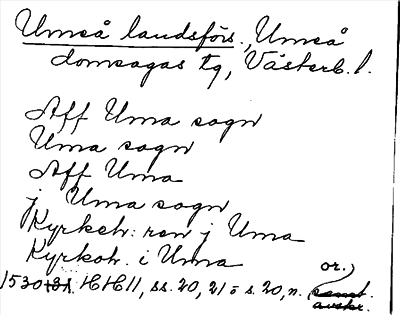 Umeå landsförs., Umeå
domsagas tg, Västerb. l.
Aff Uma sogn
Uma sogn
Aff Uma
j Uma sogn
Kyrkeh: ren j Uma
Kyrkoh. i Uma
or.)
1530 HH 11, ss. 20, 21 o s. 20, n.
avskr.